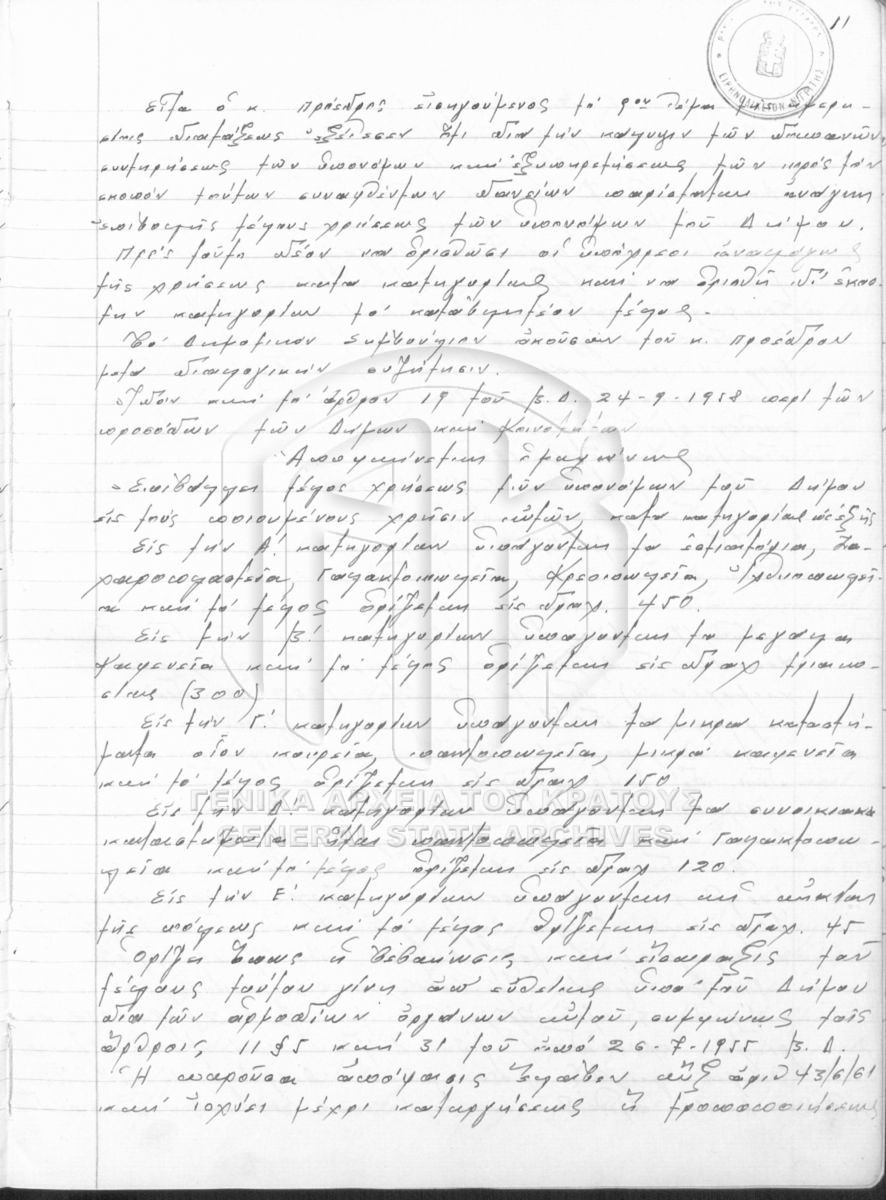 11
Εἶτα ὁ κ. πρόεδρος εἰσηγούμενος τὸ 9ον θέμα τῆς ἡμερη-
σίας διατάξεως ἐξέθεσεν ὅτι διὰ τὴν κάλυψιν τῶν δαπανῶν
συντηρήσεως τῶν ὑπονόμων καὶ ἐξυπηρετήσεως τῶν πρὸς τὸν
σκοπὸν τοῦτον συναφθέντων δανείων παρίσταται ἀνάγκη
ἐπιβολῆς τέλους χρήσεως τῶν ὑπονόμων τοῦ Δήμου.
Πρὸς τοῦτο δέον νὰ ὁρισθῶσι οἱ ὑπόχρεοι ἀναλόγως
τῆς χρήσεως κατὰ κατηγορίας καὶ νὰ ὁρισθῇ δι' ἑκάσ-
την κατηγορίαν τὸ καταβλητέον τέλος.
Τὸ Δημοτικὸν Συμβούλιον ἀκοῦσαν τοῦ κ. Προέδρου
μετὰ διαλογικὴν συζήτησιν.
Ἰδὸν καὶ τὸ ἄρθρον 19 τοῦ Β.Δ. 24-9-1958 περὶ τῶν
προσόδων τῶν Δήμων καὶ Κοινοτήτων
Ἀποφαίνεται ὁμοφώνως
Ἐπιβάλλει τέλος χρήσεως τῶν ὑπονόμων τοῦ Δήμου
εἰς τοὺς ποιουμένους χρῆσιν αὐτῶν κατὰ κατηγορίας ὡς ἑξῆς
Εἰς τὴν Α! κατηγορίαν ὑπάγονται τὰ ἑστιατόρια, Ζα-
χαροπλαστεῖα, Γαλακτοπωλεῖα, Κρεοπωλεῖα, Ἰχθυοπωλεῖ-
α καὶ τὸ τέλος ὁρίζεται εἰς δραχ. 450.
Εἰς τὴν Β! κατηγορίαν ὑπάγονται τὰ μεγάλα
Καφενεῖα καὶ τὸ τέλος ὁρίζεται εἰς δραχ τριακο-
σίας (300)
Εἰς τὴν Γ! κατηγορίαν ὑπάγονται τὰ μικρὰ καταστή-
ματα οἷον κουρεῖα, παντοπωλεῖα, μικρὰ καφενεῖα
καὶ τὸ τέλος ὁρίζεται εἰς δραχ 150
Εἰς τὴν Δ. κατηγορίαν ὑπάγονται τὰ συνοικιακὰ
καταστήματα ἤτοι παντοπωλεῖα καὶ Γαλακτοπω-
λεῖα καὶ τὸ τέλος ὁρίζεται εἰς δραχ 120.
Εἰς τὴν Ε! κατηγορίαν ὑπάγονται αἱ οἰκίαι
τῆς πόλεως καὶ τὸ τέλος ὁρίζεται εἰς δραχ. 45
Ὁρίζει ὅπως ἡ βεβαίωσις καὶ εἴσπραξις τοῦ
τέλους τούτου γίνῃ ἀπ' εὐθείας ὑπὸ τοῦ Δήμου
διὰ τῶν ἁρμοδίων ὀργάνων αὐτοῦ, συμφώνως τοῖς
ἄρθροις 11 §5 καὶ 31 τοῦ ἀπὸ 26-7-1955 Β.Δ.
Ἡ παροῦσα ἀπόφασις ἔλαβεν αὔξ ἀριθ 43/6/61
καὶ ἰσχύει μέχρι καταργήσεως ἢ τροποποιήσεως
ΓΕΝΙΚΑ ΑΡΧΕΙΑ ΤΟΥ ΚΡΑΤΟΥΣ
GENERAL STATE ARCHIVES